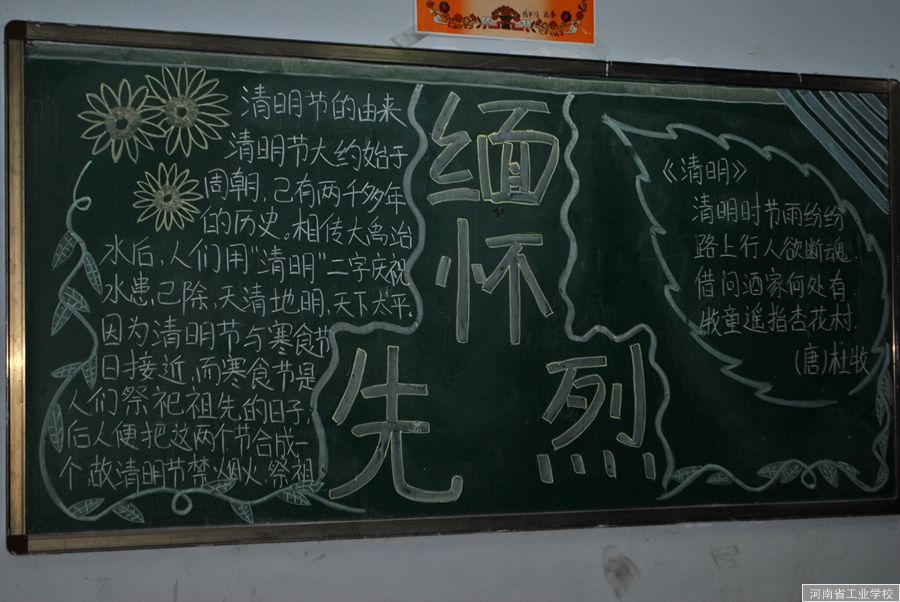 清明节的由来
清明节大约始于
周朝，已有两千多年
的历史。相传大禹治
水后，人们用“清明”二字庆祝
水患已除，天清地明，天下太平。
因为清明节与寒食节
日接近，而寒食节是
人们祭祀祖先的日子；
后人便把这两个节合成一
个，故清明节禁烟火，祭祖
缅
怀
先烈
《清明》
清明时节雨纷纷
路上行人欲断魂.
借问酒家何处有
牧童遥指杏花村.
(唐)杜牧
河南省工业学校